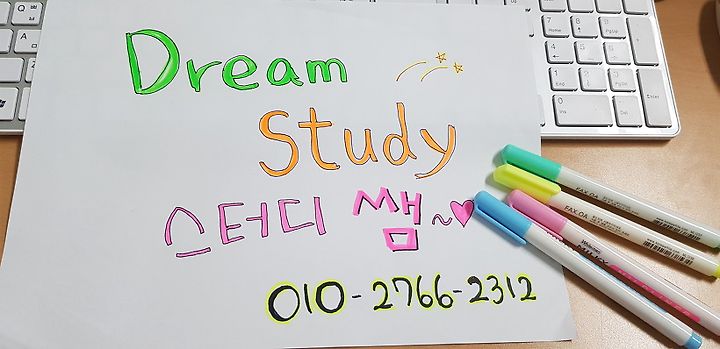 Dream
Study
스터디 쌤~♥
010-2766-2312